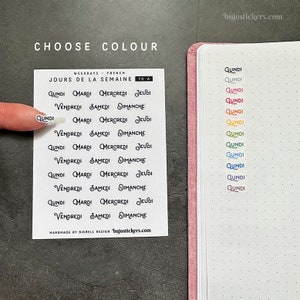 bujostickers.com
CHOOSE COLOUR
WEEKDAYS - FRENCH
JOURS DE LA SEMAINE
LUNDI MARDI MERCREDI JEUDI
VENDREDI SAMEDI DIMANCHE
LUNDI MARDI MERCREDI JEUDI
VENDREDI SAMEDI DIMANCHE
LUNDI MARDI MERCREDI JEUDI
VENDREDI SAMEDI DIMANCHE
LUNDI MARDI MERCREDI JEUDI
VENDREDI SAMEDI DIMANCHE
HANDMADE BY NICBELL DESIGN bujostickers.com
LUNDI
LUNDI
LUNDI
LUNDI
LUNDI
LUNDI
LUNDI
LUNDI
LUNDI
LUNDI
LUNDI
LUNDI